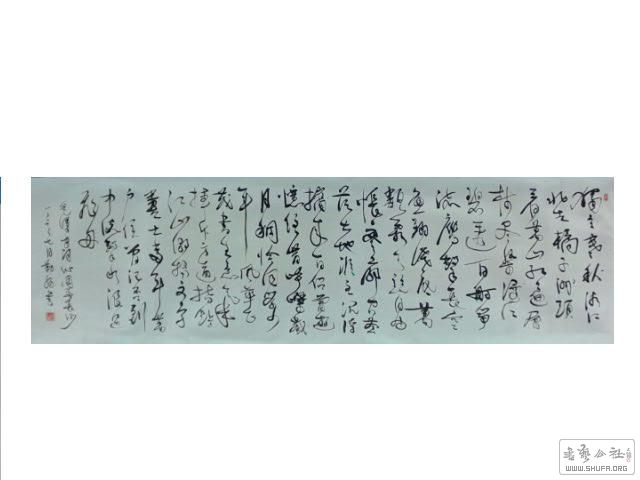 独立寒秋湘江
北去橘子洲头
看万山红遍层
林尽染漫江
碧透百舸争
流鹰击长空
鱼翔浅底万
类霜天竞自由
怅寥廓问苍
茫大地谁主沉浮
携来百侣曾游
忆往昔峥嵘岁
月稠恰同学少
年风华正
茂书生意气挥
斥方遒指点
江山激扬文字
粪土当年万
户侯曾记否到
中流击水浪遏
飞舟
毛泽东词沁园春长沙
七月
书艺公社
WWW.SHUFA.ORG